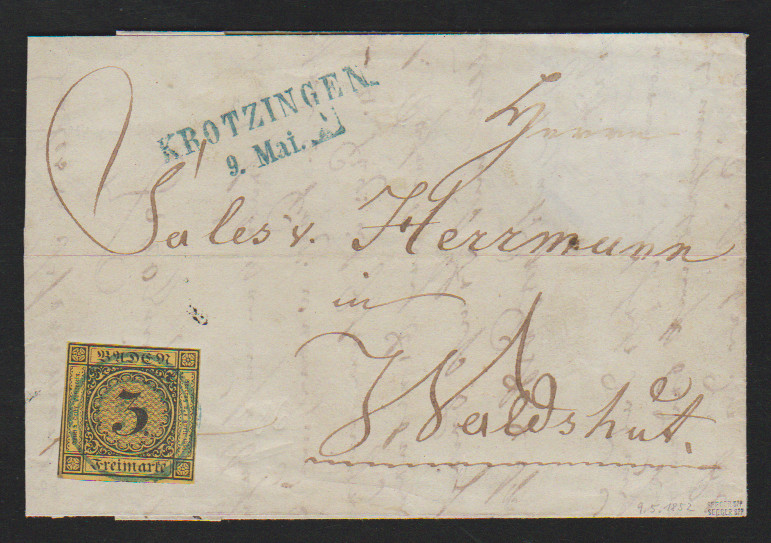 KROTZINGEN.
9. Mai.
Herrn
Sales v. Herrmann
in
Waldshut.
BADEN
3
Freimarke
9.5.1852